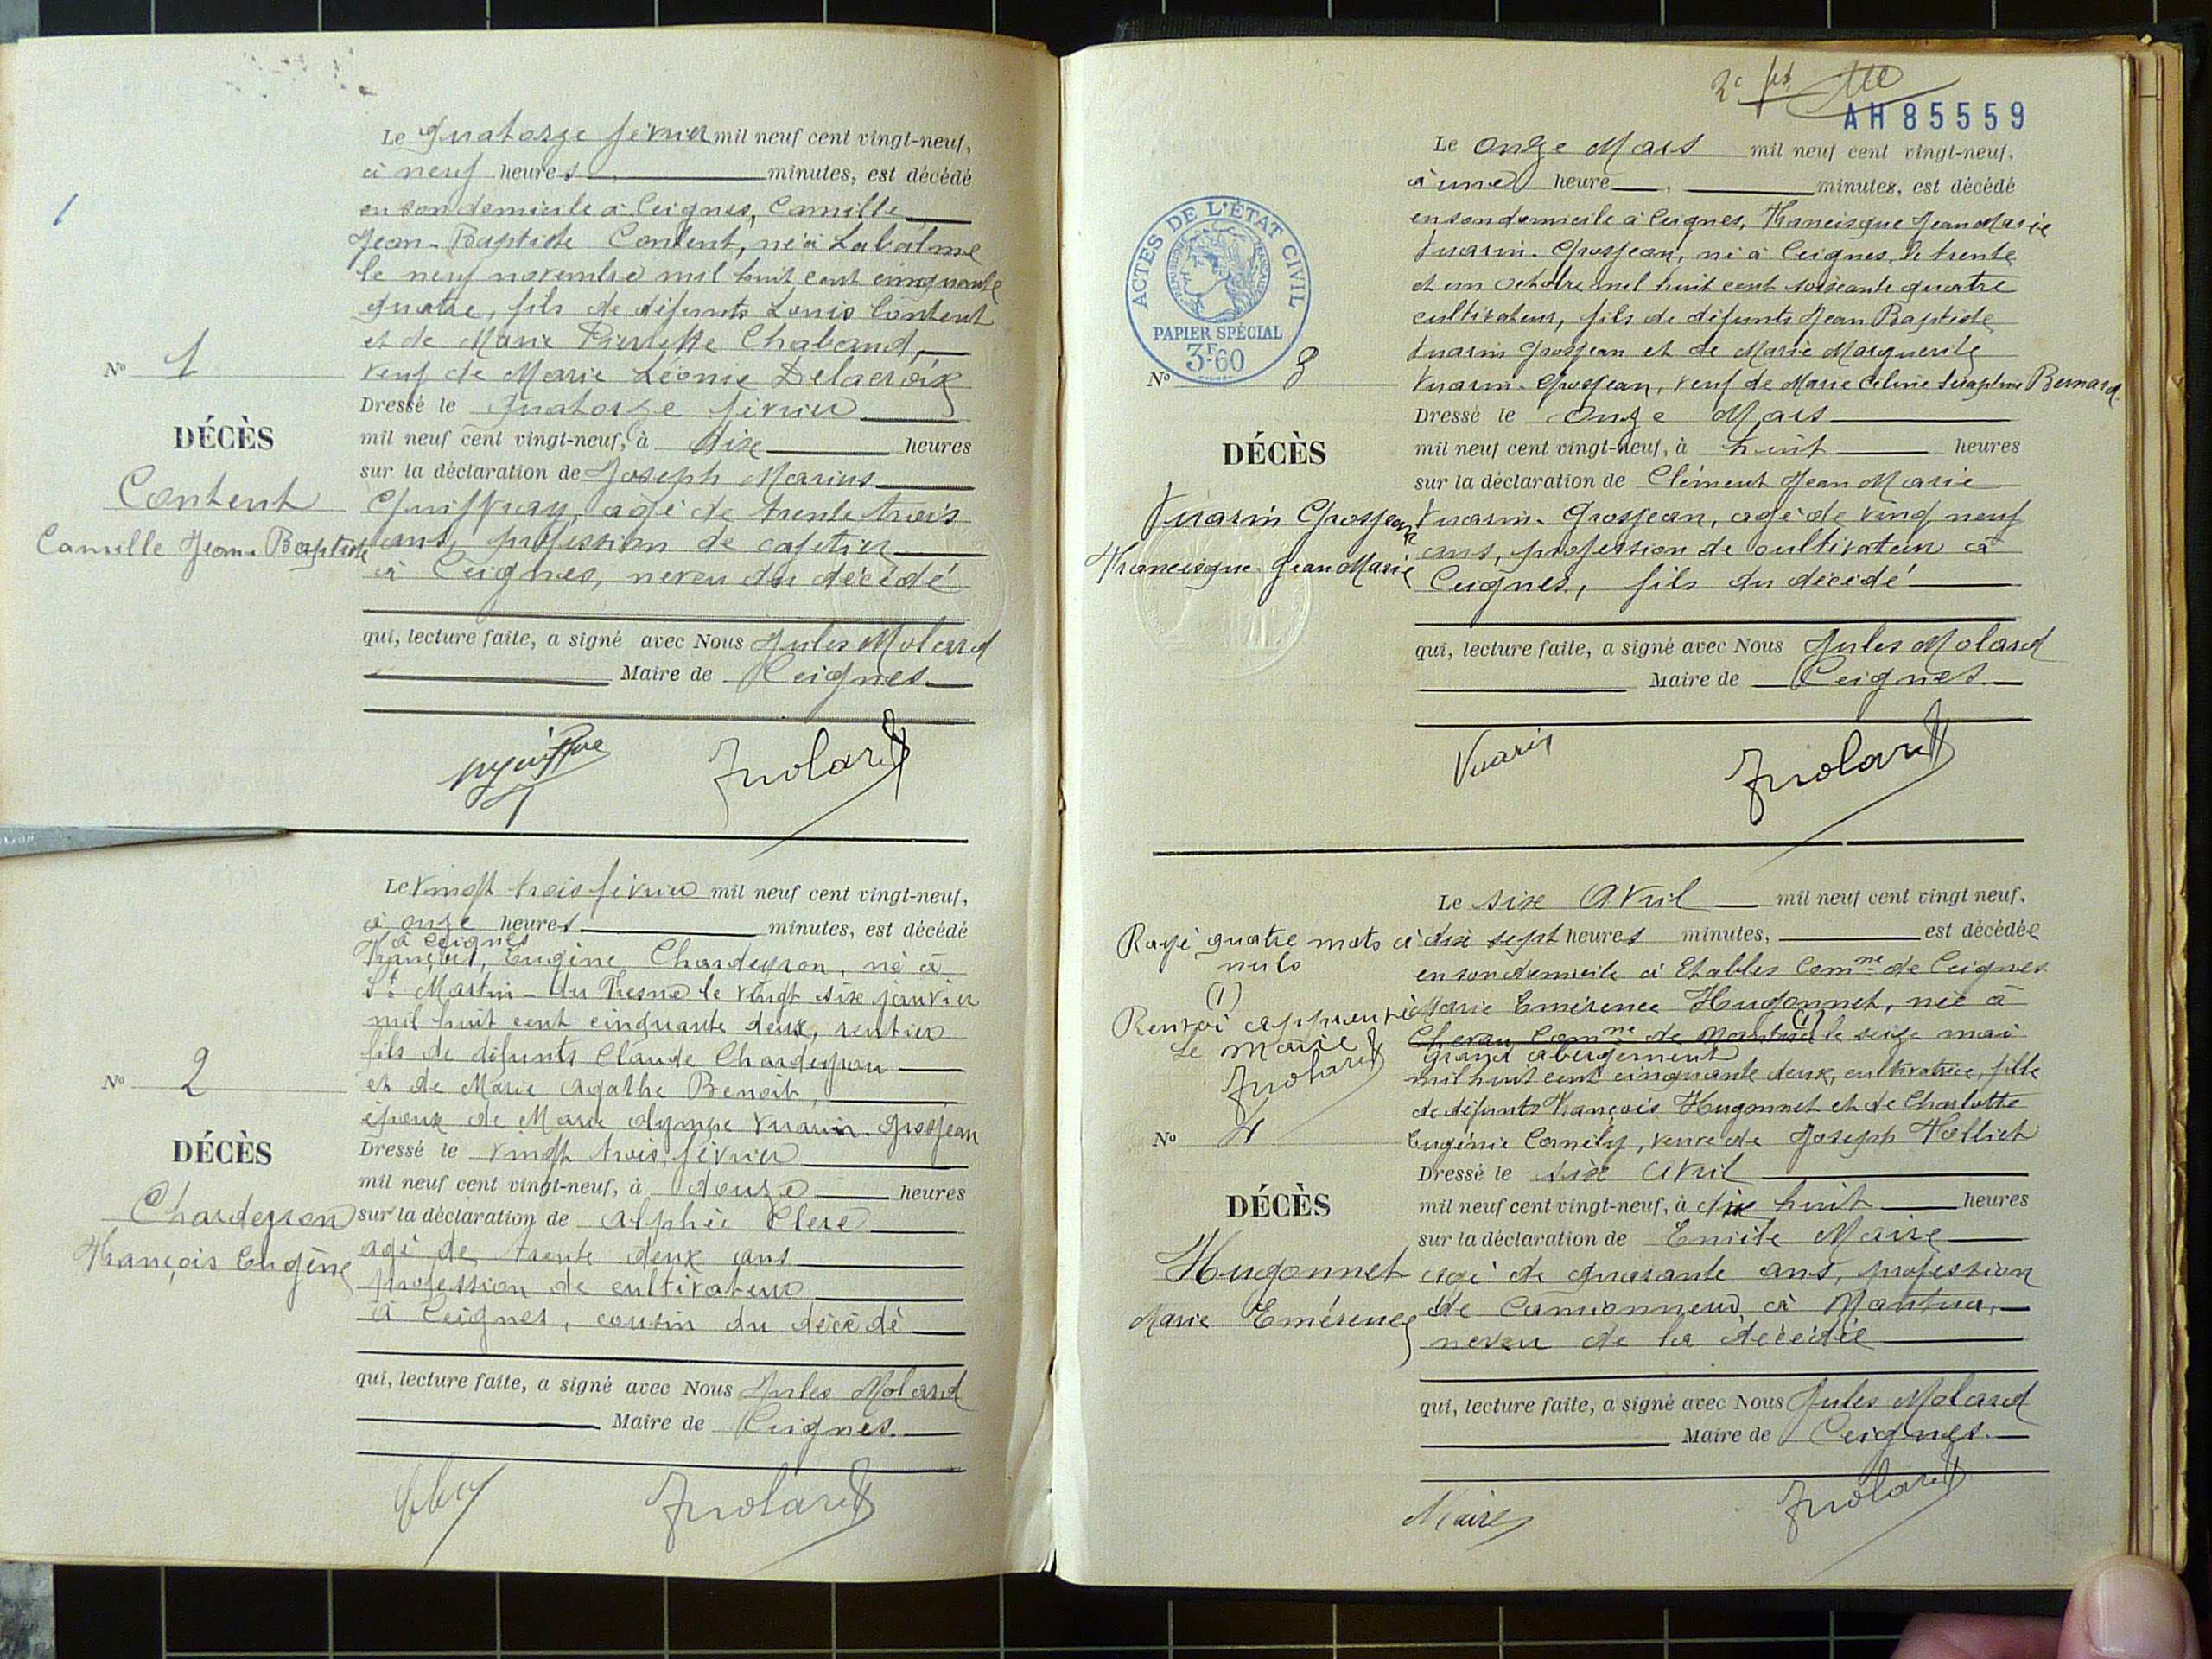 1
Le quatorze février mil neuf cent vingt-neuf,
à neuf heures, minutes, est décédé
en son domicile à Ceignes, Camille
Jean-Baptiste Content, né à Labalme
le neuf novembre mil huit cent cinquante
quatre, fils de défunts Louis Content
et de Marie Pierrette Chabaud,
veuf de Marie Léonie Delacroix
Nº 1
DÉCÈS
Content
Camille Jean-Baptiste
Dressé le quatorze février
mil neuf cent vingt-neuf, à dix heures
sur la déclaration de Joseph Marius
Guiffray, agé de trente trois
ans, profession de cafetier
à Ceignes, neveu du décédé
qui, lecture faite, a signé avec Nous Jules Molard
Maire de Ceignes
JMolard
Le vingt trois février mil neuf cent vingt-neuf,
à onze heures minutes, est décédé
à Ceignes
François, Eugène Chardeyron, né à
St Martin-du Fresne le vingt six janvier
mil huit cent cinquante deux, rentier
fils de défunts Claude Chardeyron
et de Marie Agathe Benoit,
époux de Marie Olympe Vuarin-Grosjean
Nº 2
DÉCÈS
Chardeyron
François Eugène
Dressé le vingt trois février
mil neuf cent vingt-neuf, à douze heures
sur la déclaration de Alphée Clerc
agé de trente deux ans
profession de cultivateur
à Ceignes, cousin du décédé
qui, lecture faite, a signé avec Nous Jules Molard
Maire de Ceignes.
JMolard
2e
AH 85559
Le onze Mars mil neuf cent vingt-neuf,
à une heure, minutes, est décédé
en son domicile à Ceignes, Francisque Jean Marie
Vuarin-Grosjean, né à Ceignes, le trente
et un octobre mil huit cent soixante quatre
cultivateur, fils de défunts Jean Baptiste
Vuarin Grosjean et de Marie Marguerite
Vuarin-Grosjean, veuf de Marie Céline Séraphine Bernard
ACTES DE L'ÉTAT CIVIL
RÉPUBLIQUE FRANÇAISE
PAPIER SPÉCIAL
3F60
Nº 3
DÉCÈS
Vuarin Grosjean
Francisque Jean Marie
Dressé le onze Mars
mil neuf cent vingt-neuf, à huit heures
sur la déclaration de Clément Jean Marie
Vuarin-Grosjean, agé de vingt neuf
ans, profession de cultivateur à
Ceignes, fils du décédé
qui, lecture faite, a signé avec Nous Jules Molard
Maire de Ceignes
Vuarin
JMolard
Le six Avril mil neuf cent vingt neuf,
à dix sept heures minutes, est décédée
en son domicile à Etables Comne de Ceignes
Marie Emérence Hugonnet, née à
Chevau Comne de Mantua (1) le seize mai
grand abergement
mil huit cent cinquante deux, cultivatrice, fille
de défunts François Hugonnet et de Charlotte
Eugénie Comély, veuve de Joseph Folliet
Rayé quatre mots
nuls
(1)
Renvoi approuvé
Le Maire
JMolard
Nº 4
DÉCÈS
Hugonnet
Marie Emérence
Dressé le six Avril
mil neuf cent vingt-neuf, à dix huit heures
sur la déclaration de Emile Maire
agé de quarante ans, profession
de Camionneur à Nantua,
neveu de la décédée
qui, lecture faite, a signé avec Nous Jules Molard
Maire de Ceignes.
Maire
JMolard